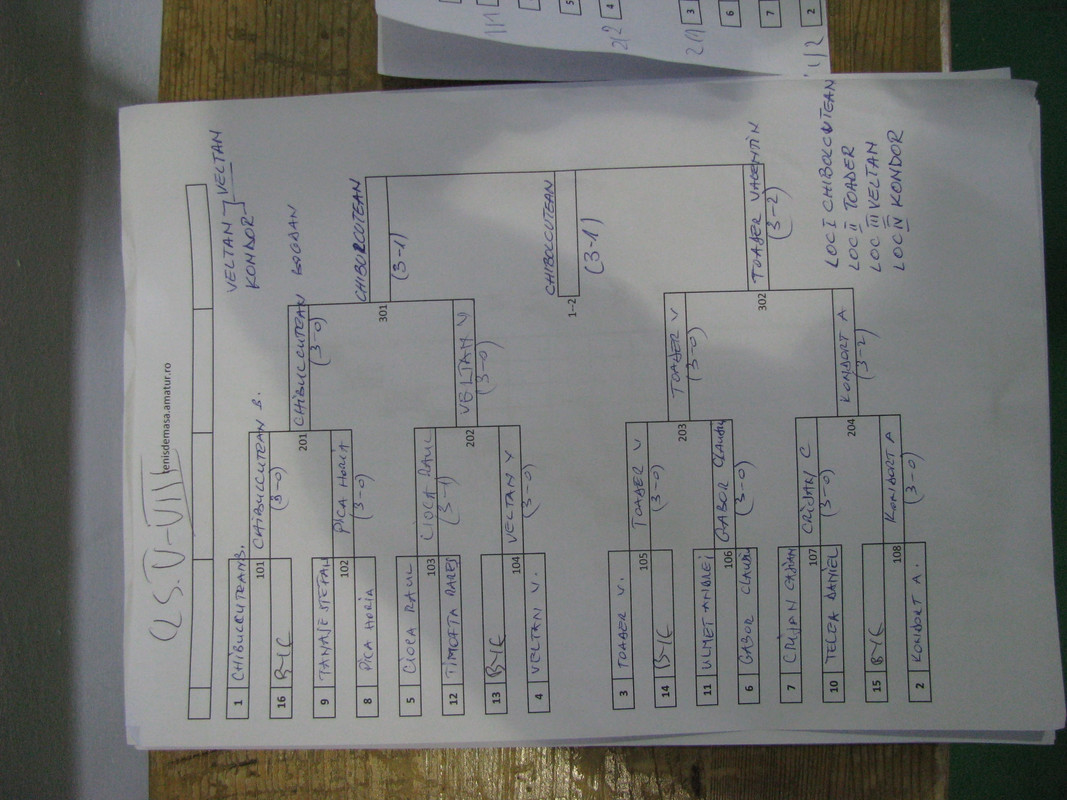 CLS. V-VIII
tenisdemasa.amatur.ro
1 CHIBULCUTEAN B.
16 BYE
9 TANASE STEFAN
8 PICA HORIA
5 CIOCA RAUL
12 TIMOFTA RARES
13 BYE
4 VELTAN V.
3 TOADER V.
14 BYE
11 ULMET ANDREI
6 GABOR CLAUDIU
7 CRIJAN CRISTIAN
10 TELEA DANIEL
15 BYE
2 KONDORT A.
101
102
103
104
105
106
107
108
CHIBULCCUTEAN B.
(3-0)
PICA HORIA
(3-0)
CIOCA RAUL
(3-1)
VELTAN V
(3-0)
TOADER V
(3-0)
GABOR CLAUDIU
(3-0)
CRIJAN C
(3-0)
KONDORT A
(3-0)
201
202
203
204
CHIBULCCUTEAN BOGDAN
(3-0)
VELTAN V
(3-0)
TOADER V
(3-0)
KONDORT A
(3-2)
301
302
CHIBULCUTEAN
(3-1)
TOADER VALENTIN
(3-2)
1-2
CHIBOLCUTEAN
(3-1)
VELTAN
KONDOR
VELTAN
LOC I CHIBOLCCUTEAN
LOC II TOADER
LOC III VELTAN
LOC IV KONDOR
1/1
5
4
2/2
3
2/1
6
7
2
1/2